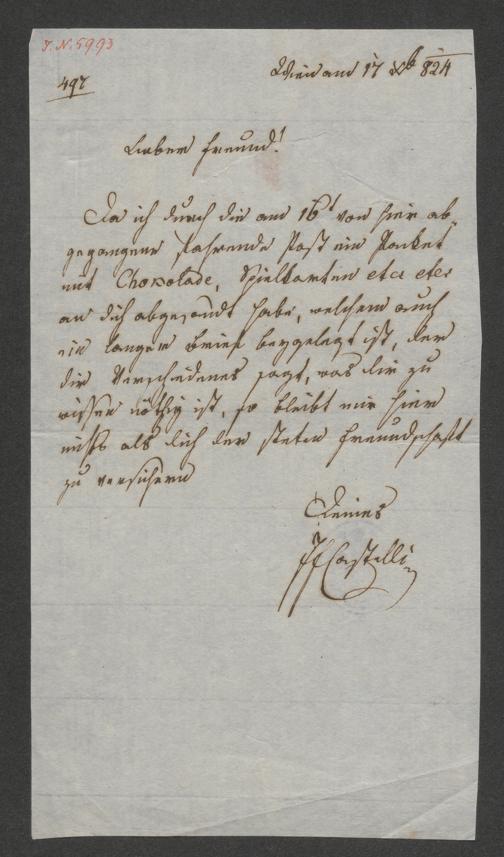 I. N. 5993
497
Wien am 17 Xb 824
Lieber Freund!
Da ich durch die am 16t von hier ab-
gegangene fahrende Post ein Packet
mit Chokolade, Spielkarten etc etc
an dich abgesandt habe, welchem auch
ein langer Brief beygelegt ist, der
dir Verschiedenes sagt, was dir zu
wissen nöthig ist, so bleibt mir hier
nichts als dich der steten Freundschaft
zu versichern
Deines
JFCastelli